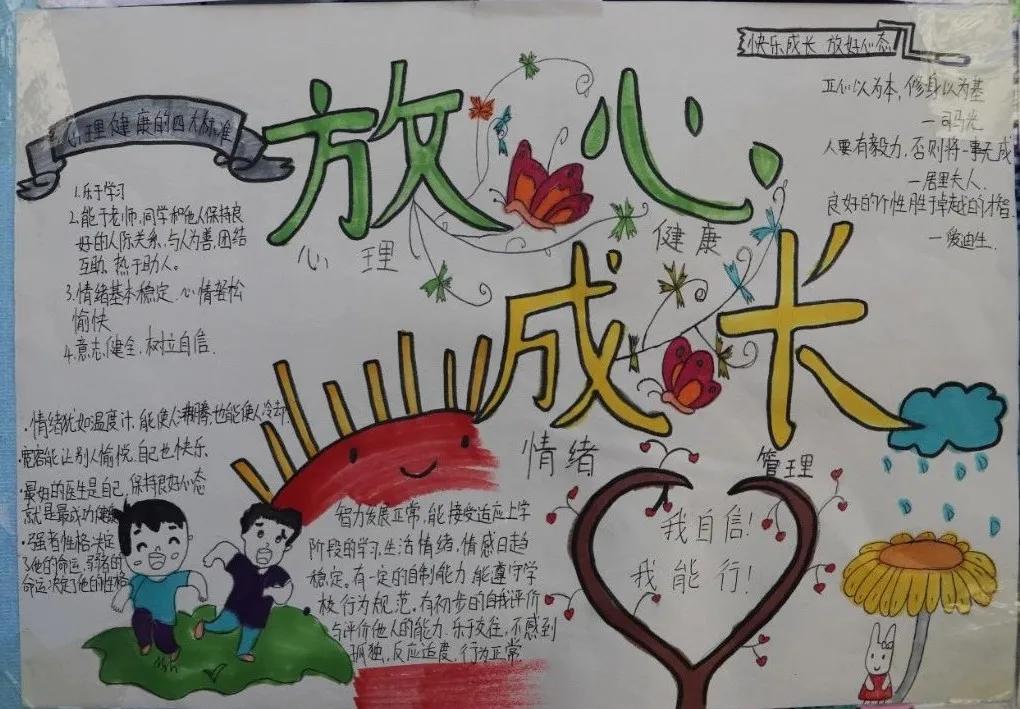 快乐成长 放好心态
正心以为本，修身以为基
一司马光
人要有毅力，否则将一事无成
一居里夫人．
良好的个性胜于卓越的才智
一爱迪生．
放心
成长
心理
健康
情绪
管理
心理健康的四大标准
1.乐于学习
2.能于老师、同学和他人保持良
好的人际关系，与人为善，团结
互助、热于助人。
3.情绪基本稳定、心情轻松
愉快
4.意志健全、树拉自信．
·情绪犹如温度计，能使人沸腾，也能使人冷却．
·宽容能让别人愉悦，自己也快乐．
·最好的医生是自己，保持良好心态
就是最成功健康
·强者性格决定
了他的命运，弱者的
命运决定了他的性格
智力发展正常，能接受适应上学
阶段的学习生活情绪，情感日趋
稳定。有一定的自制能力，能遵守学
校行为规范。有初步的自我评价
与评价他人的能力．乐于交往，不感到
孤独，反应适度，行为正常
我自信！
我能行！